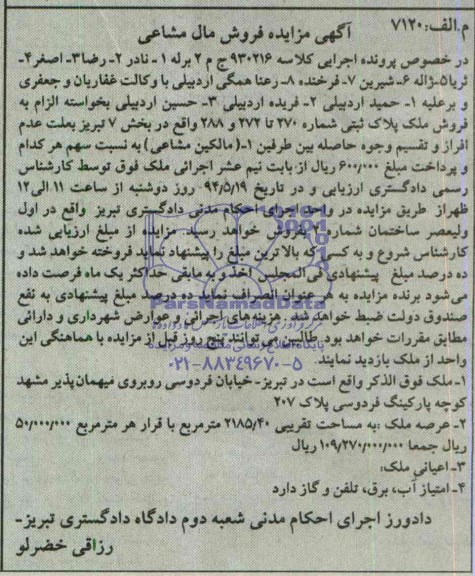 م.الف: ۷۱۲۰
آگهی مزایده فروش مال مشاعی
در خصوص پرونده اجرایی کلاسه ۹۳۰۲۱۶ ج م ۲ برله ۱- نادر ۲- رضا ۳- اصغر ۴-
ثریا ۵- ژاله ۶- شیرین ۷- فرخنده ۸- رعنا همگی اردبیلی با وکالت غفاریان و جعفری
و برعلیه ۱- حمید اردبیلی ۲- فریده اردبیلی ۳- حسین اردبیلی بخواسته الزام به
فروش ملک پلاک ثبتی شماره ۲۷۰ تا ۲۷۲ و ۲۸۸ واقع در بخش ۷ تبریز بعلت عدم
افراز و تقسیم وجوه حاصله بین طرفین ۱-( مالکین مشاعی) به نسبت سهم هر کدام
و پرداخت مبلغ ۶۰۰/۰۰۰ ریال از بابت نیم عشر اجرائی ملک فوق توسط کارشناس
رسمی دادگستری ارزیابی و در تاریخ ۹۴/۵/۱۹ روز دوشنبه از ساعت ۱۱ الی ۱۲
ظهر از طریق مزایده در واحد اجرای احکام مدنی دادگستری تبریز واقع در اول
ولیعصر ساختمان شماره ۲ بفروش خواهد رسید مزایده از مبلغ ارزیابی شده
کارشناس شروع و به کسی که بالاترین مبلغ را پیشنهاد نماید فروخته خواهد شد و
ده درصد مبلغ پیشنهادی فی المجلس اخذ و به مابقی حداکثر یک ماه فرصت داده
می شود برنده مزایده به هر عنوان انصراف نماید ده درصد مبلغ پیشنهادی به نفع
صندوق دولت ضبط خواهد شد . هزینه های اجرائی و عوارض شهرداری و دارائی
مطابق مقررات خواهد بود. طالبین می توانند پنج روز قبل از مزایده با هماهنگی این
واحد از ملک بازدید نمایند.
ParsNamadData
۰۲۱-۸۸۳۴۹۶۷۰-۵
۱- ملک فوق الذکر واقع است در تبریز- خیابان فردوسی روبروی میهمان پذیر مشهد
کوچه پارکینگ فردوسی پلاک ۲۰۷
۲- عرصه ملک :به مساحت تقریبی ۲۱۸۵/۴۰ مترمربع با قرار هر مترمربع ۵۰/۰۰۰/۰۰۰
ریال جمعا ۱۰۹/۲۷۰/۰۰۰/۰۰۰ ریال
۳- اعیانی ملک:
۴- امتیاز آب، برق، تلفن و گاز دارد
دادورز اجرای احکام مدنی شعبه دوم دادگاه دادگستری تبریز-
رزاقی خضرلو